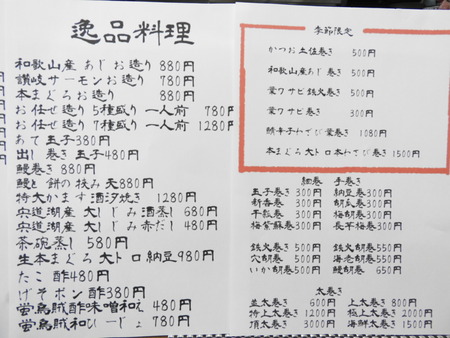 逸品料理
和歌山産 あじお造り 880円
讃岐サーモンお造り 780円
本まぐろお造り 880円
お任せ造り 5種盛り 一人前 780円
お任せ造り 7種盛り 一人前 1280円
あて玉子380円
出し巻き 玉子480円
鰻巻き 880円
鰻と餅の挟み天880円
特大かます酒汐焼き 1280円
宍道湖産 大しじみ酒蒸し 680円
宍道湖産 大しじみ赤だし 480円
茶碗蒸し 580円
生本まぐろ大トロ納豆980円
たこ酢480円
げそポン酢380円
蛍烏賊酢味噌和え 480円
蛍烏賊和ひーじょ 780円
季節限定
かつお土佐巻き 500円
和歌山産あじ巻き 500円
葉ワサビ鉄火巻き 500円
葉ワサビ巻き 300円
明太子わさび葉巻き 1080円
本まぐろ大トロ本わさび巻き 1500円
細巻 手巻き
玉子巻き300円 納豆巻300円
新香巻 300円 胡瓜巻300円
干瓢巻 300円 梅胡巻300円
梅紫蘇巻300円 長芋梅巻300円
鉄火巻500円 鉄火巻550円
穴胡巻500円 海老胡巻550円
いか胡巻500円 鰻胡巻 650円
太巻き
並太巻き 600円 上太巻き 800円
特上太巻き1200円 極上太巻き2000円
頂太巻き 3000円 海鮮太巻き1500円